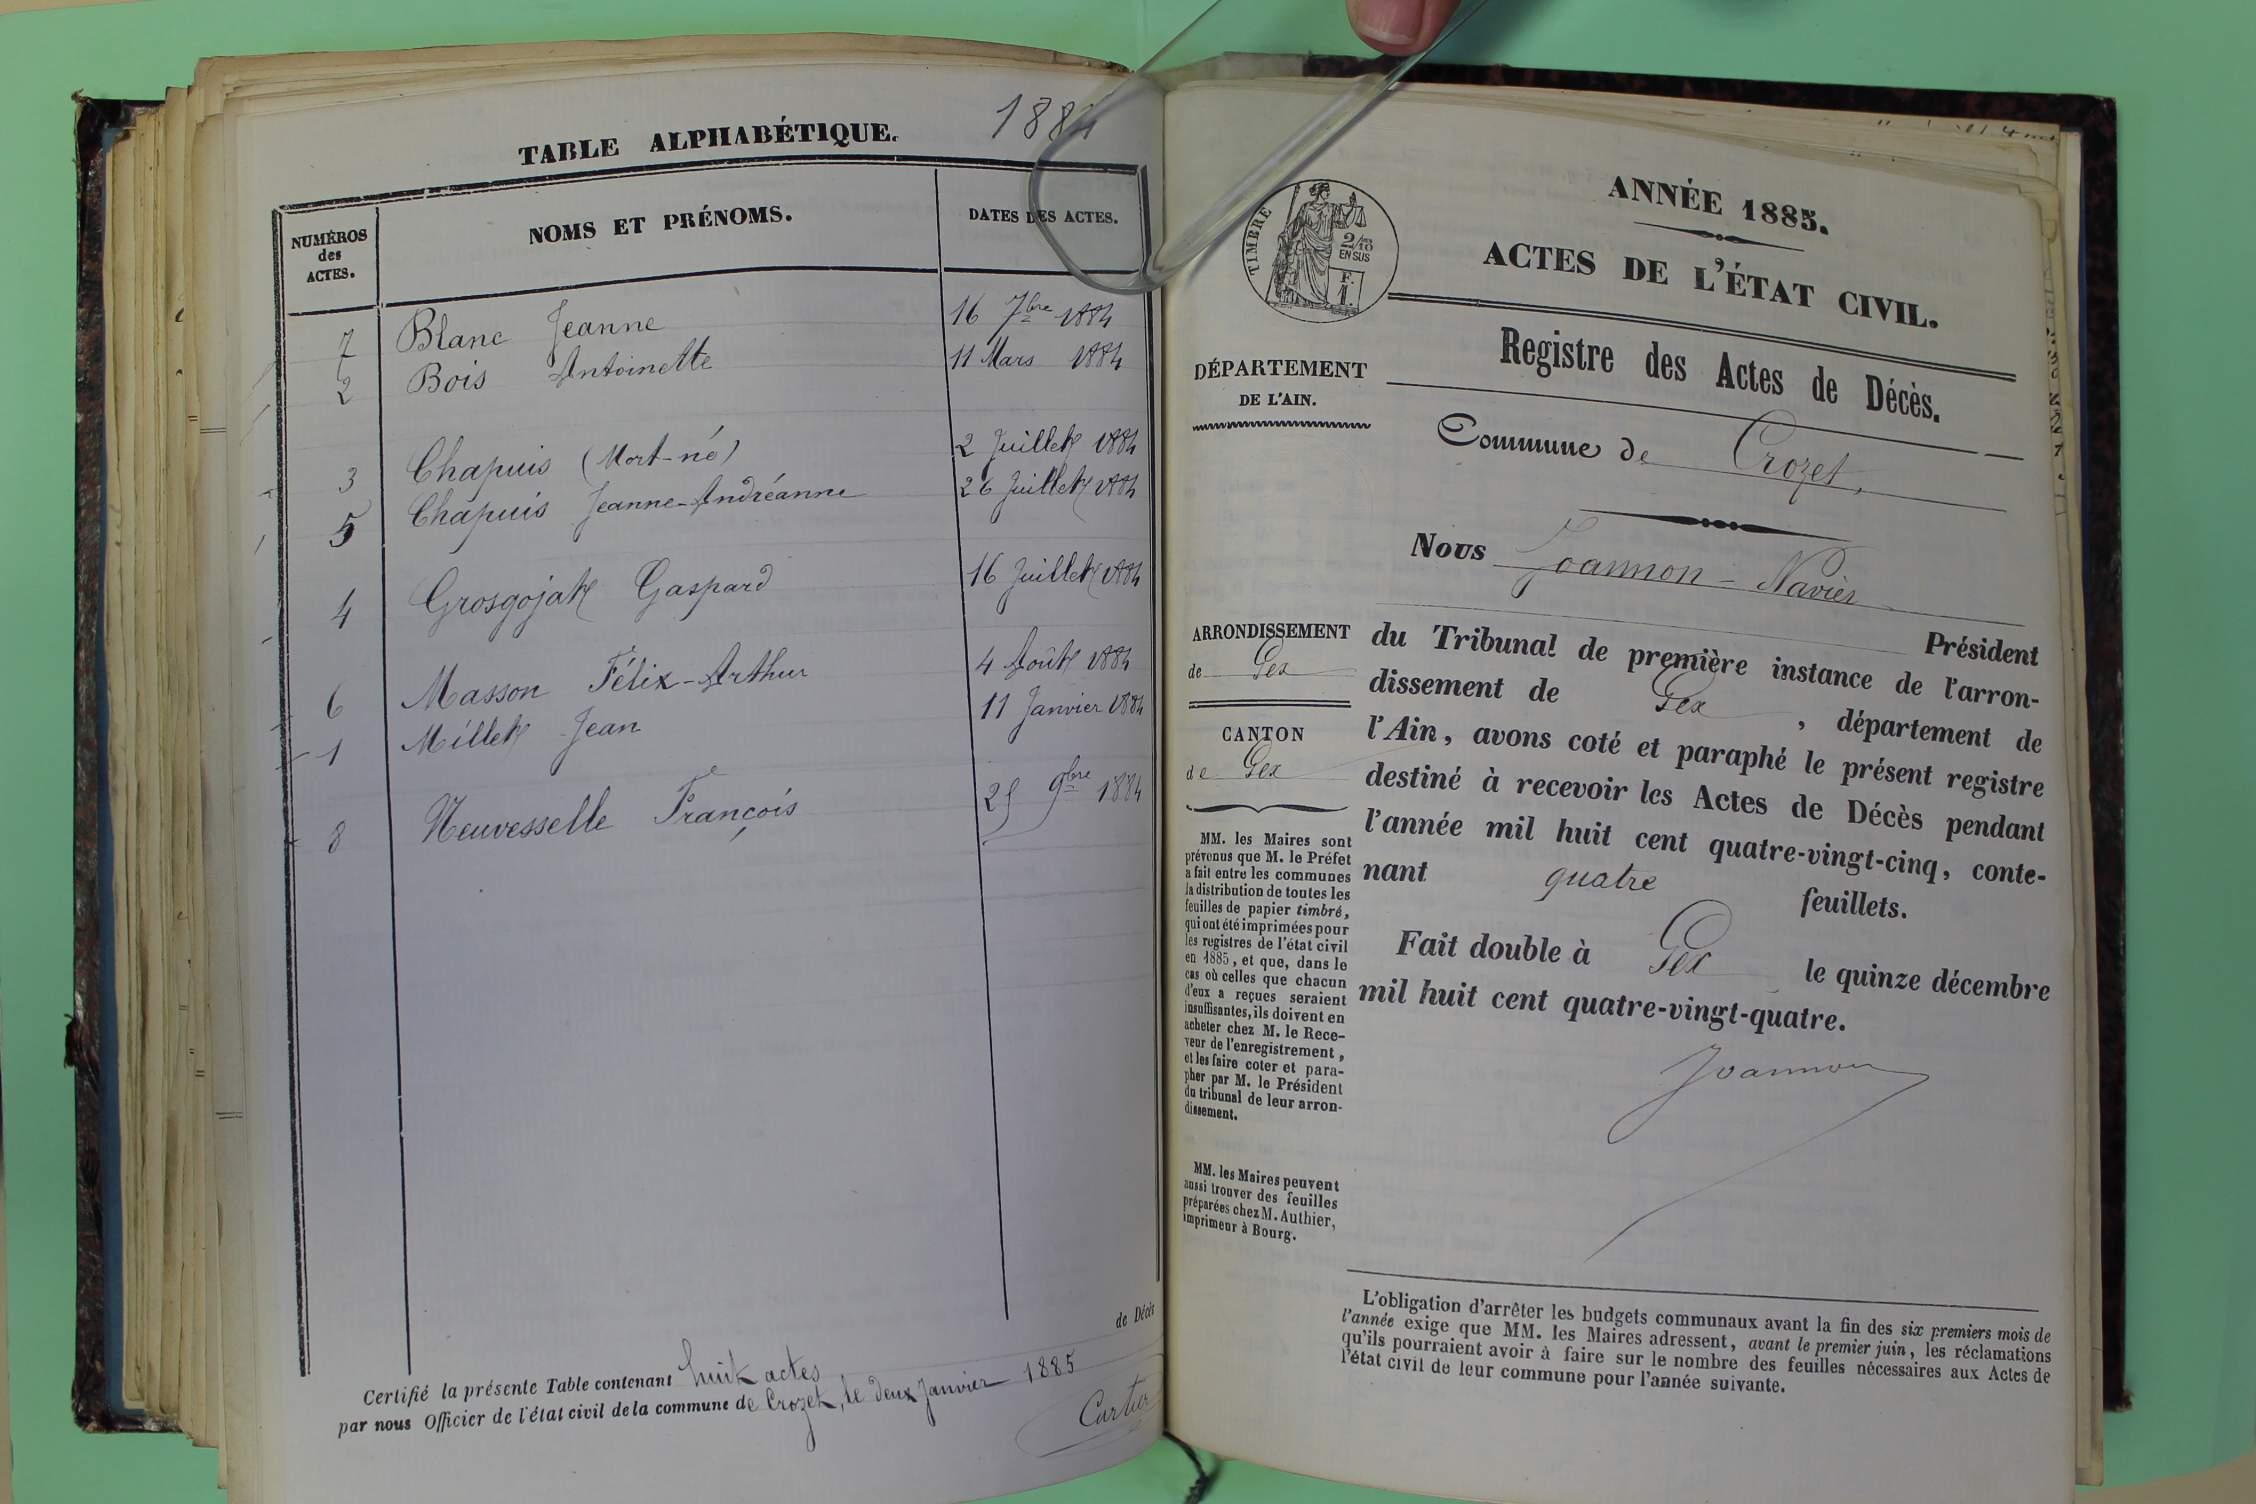 TABLE ALPHABÉTIQUE.
1884
NUMÉROS
des
ACTES.
NOMS ET PRÉNOMS.
DATES DES ACTES.
7 Blanc Jeanne 16 7bre 1884
2 Bois Antoinette 11 Mars 1884
3 Chapuis (Mort-né) 2 Juillet 1884
5 Chapuis Jeanne-Andréanne 26 Juillet 1884
4 Grosgojat Gaspard 16 Juillet 1884
6 Masson Félix-Arthur 4 Août 1884
1 Millet Jean 11 Janvier 1884
8 Neuvesselle François 25 9bre 1884
de Décès
Certifié la présente Table contenant huit actes
par nous Officier de l'état civil de la commune de Crozet, le deux Janvier 1885
Cartier
ANNÉE 1885.
ACTES DE L'ÉTAT CIVIL.
TIMBRE
2/10
EN SUS
F.
1.
Registre des Actes de Décès.
DÉPARTEMENT
DE L'AIN.
Commune de Crozet,
Nous Joannon-Navier
Président
du Tribunal de première instance de l'arron-
dissement de Gex, département de
l'Ain, avons coté et paraphé le présent registre
destiné à recevoir les Actes de Décès pendant
l'année mil huit cent quatre-vingt-cinq, conte-
nant quatre feuillets.
Fait double à Gex le quinze décembre
mil huit cent quatre-vingt-quatre.
Joannon
ARRONDISSEMENT
de Gex
CANTON
de Gex
MM. les Maires sont
prévenus que M. le Préfet
a fait entre les communes
la distribution de toutes les
feuilles de papier timbré,
qui ont été imprimées pour
les registres de l'état civil
en 1885, et que, dans le
cas où celles que chacun
d'eux a reçues seraient
insuffisantes, ils doivent en
acheter chez M. le Rece-
veur de l'enregistrement,
et les faire coter et para-
pher par M. le Président
du tribunal de leur arron-
dissement.
MM. les Maires peuvent
aussi trouver des feuilles
préparées chez M. Authier,
imprimeur à Bourg.
L'obligation d'arrêter les budgets communaux avant la fin des six premiers mois de
l'année exige que MM. les Maires adressent, avant le premier juin, les réclamations
qu'ils pourraient avoir à faire sur le nombre des feuilles nécessaires aux Actes de
l'état civil de leur commune pour l'année suivante.